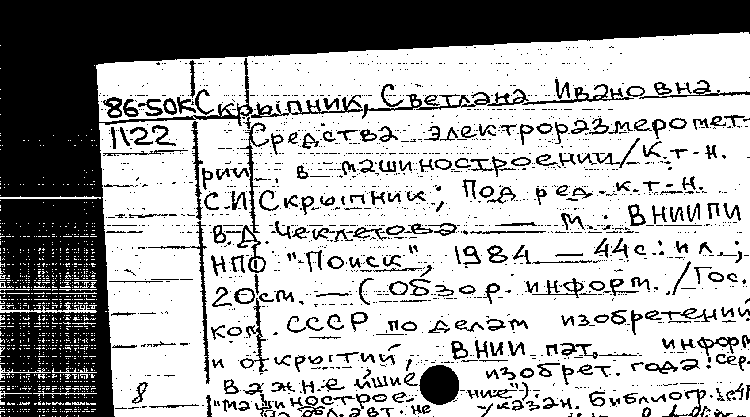 86-50К Скрыпник, Светлана Ивановна.
1122 Средства электроразмеромет-
рии в машиностроении/К.т.н.
С.И. Скрыпник; Под ред. к.т.н.
В.Д. Чеклетова. — М.: ВНИИПИ
НПО "Поиск", 1984 — 44с.: ил.;
20см. — (Обзор. информ. / Гос.
ком. СССР по делам изобретений
и открытий, ВНИИ пат. информ
Важнейшие изобрет. года: сер.
8 "Машинострое ние").
На обл. авт. не указан. Библиогр.: